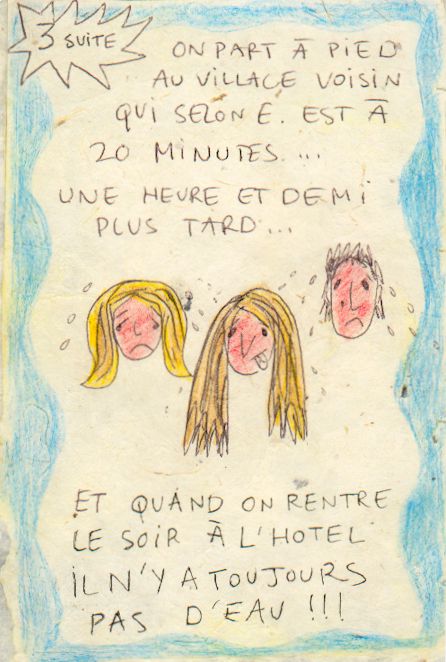 3 SUITE
ON PART À PIED
AU VILLAGE VOISIN
QUI SELON E. EST À
20 MINUTES...
UNE HEURE ET DEMI
PLUS TARD...
ET QUAND ON RENTRE
LE SOIR À L'HOTEL
IL N'Y A TOUJOURS
PAS D'EAU !!!